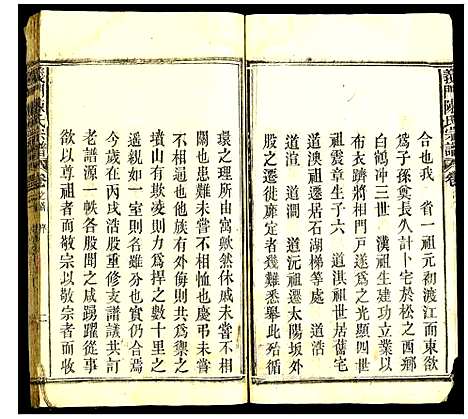 義門陳氏宗譜 卷
合也我　省一祖元初渡江而東欲
爲子孫奠長久計卜宅於松之西鄉
白鶴冲三世　漢祖生建功立業以
布衣躋將相門戸遂爲之光顯四世
祖震章生子六　道淇祖世居舊宅
道溴祖遷居石湖梯等處　道澌
道澗　道沅祖遷太陽坂外
股之徙遷靡定者難悉舉此殆循
環之理所由寓歟然休戚未嘗不相
關也患難未嘗不相恤也慶弔未嘗
不相通也他族或有外侮則共爲禦之
墳山有欺凌則力爲捍之數十里之
遙宛然如一室則各分亦也實仍合焉
今歲在丙戌浩股重修支譜議共訂
老譜源一帙各股聞之咸踴躍從事
欲以尊祖者而敬宗以敬宗者而收
義門陳氏宗譜 卷